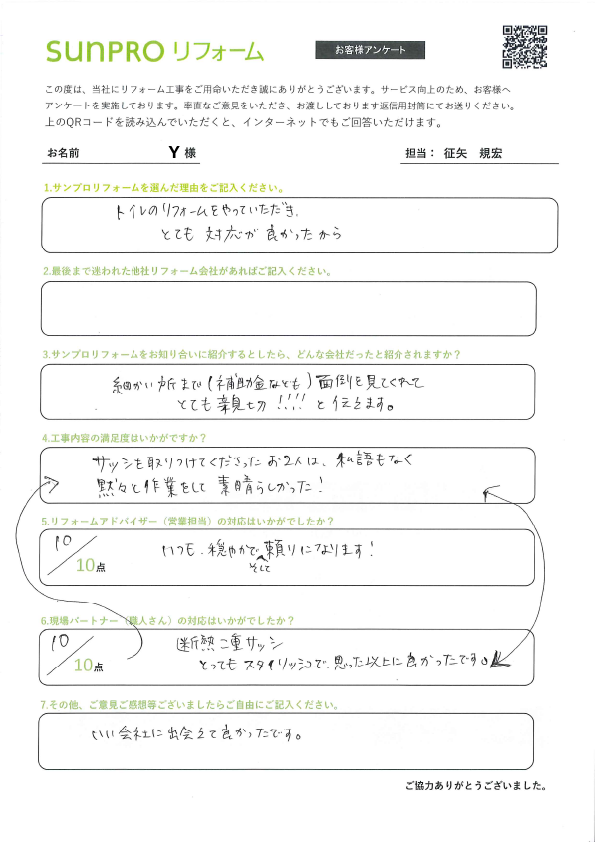 SUNPRO リフォーム
お客様アンケート
この度は、当社にリフォーム工事をご用命いただき誠にありがとうございます。サービス向上のため、お客様へ
アンケートを実施しております。率直なご意見をいただき、お渡ししております返信用封筒にてお送りください。
上のQRコードを読み込んでいただくと、インターネットでもご回答いただけます。
お名前 Y 様 担当： 征矢 規宏
1.サンプロリフォームを選んだ理由をご記入ください。
トイレのリフォームをやっていただき、
とても 対応が 良かったから
2.最後まで迷われた他社リフォーム会社があればご記入ください。
3.サンプロリフォームをお知り合いに紹介するとしたら、どんな会社だったと紹介されますか？
細かい所まで(補助金なども)面倒を見てくれて
とても親切!!!! と伝えます。
4.工事内容の満足度はいかがですか？
サッシを取りつけてくださったお2人は、私語もなく
黙々と作業をして 素晴らしかった!
5.リフォームアドバイザー（営業担当）の対応はいかがでしたか？
10/10点 いつも、穏やかで 頼りになります!
そして
6.現場パートナー（職人さん）の対応はいかがでしたか？
10/10点 断熱二重サッシ
とってもスタイリッシュで、思った以上に良かったです。
7.その他、ご意見ご感想等ございましたらご自由にご記入ください。
いい会社に出会えて良かったです。
ご協力ありがとうございました。